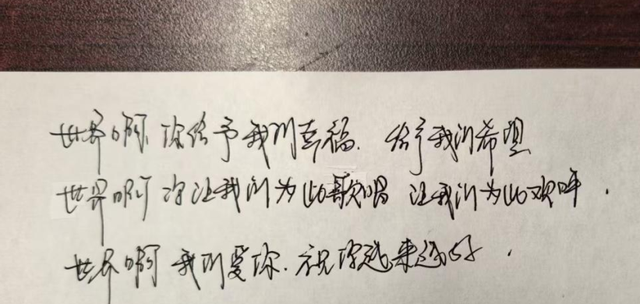 世界啊 你给予我们幸福. 给予我们希望
世界啊 你让我们为你歌唱 让我们为你欢呼.
世界啊 我们爱你. 祝你越来越好.